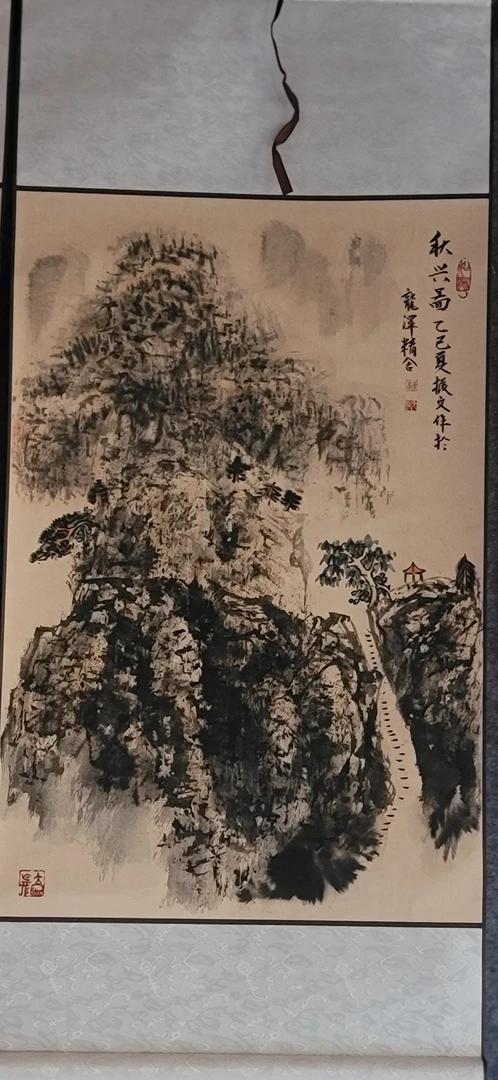 秋兴图 乙巳夏振文作於
龍潭精舍